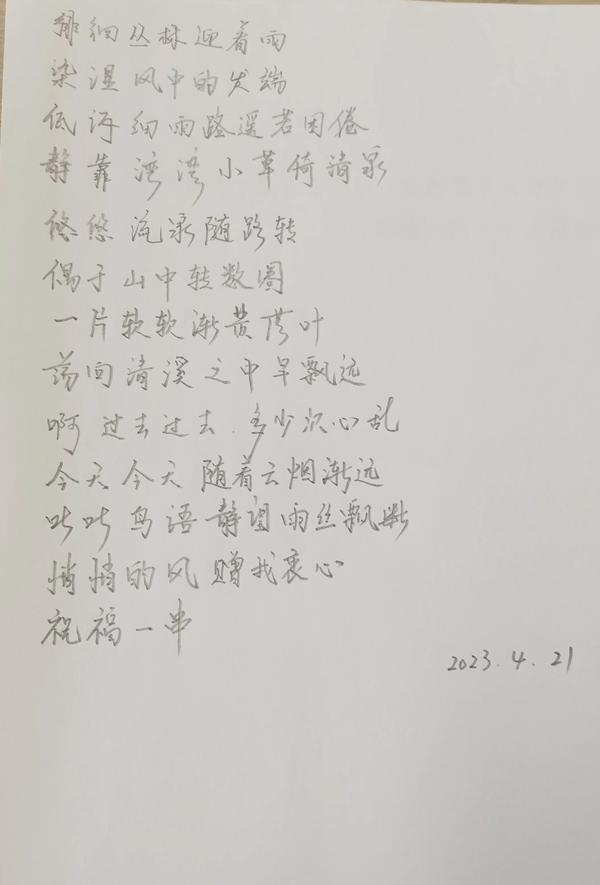 排细丛林迎着雨
染湿风中的发端
低诉细雨路遥若困倦
静靠湾湾小草倚清泉
悠悠流水随路转
偶于山中转数圈
一片软软渐黄落叶
荡回清溪之中早飘远
啊 过去过去.多少次心乱
今天今天 随着云烟渐远
吱吱鸟语静望雨丝飘断
悄悄的风 赠我衷心
祝福一串
2023.4.21